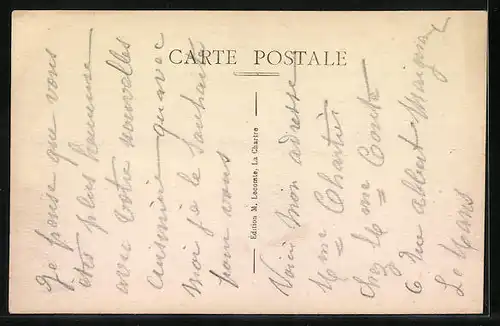 CARTE POSTALE
Je pense que vous
êtes plus heureuse
avec votre nouvelle
cuisinière qu'avec
moi je le souhaite
pour vous
Edition M. Lecomte, La Chartre
Voici mon adresse
Mme Chartier
chez Mme Conte
6 Rue Albert Maignan
Le Mans